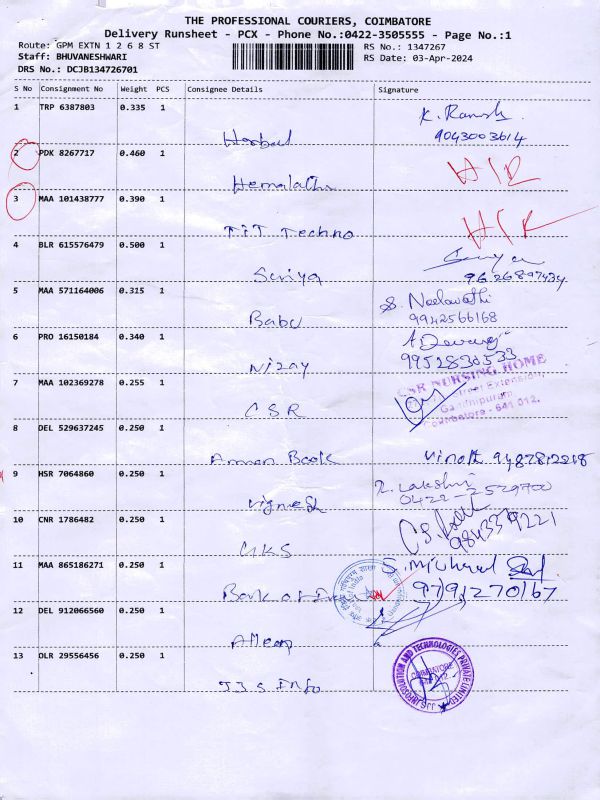 THE PROFESSIONAL COURIERS, COIMBATORE
Delivery Runsheet - PCX - Phone No.:0422-3505555 - Page No.:1
Route: GPM EXTN 1 2 6 8 ST RS No.: 1347267
Staff: BHUVANESHWARI RS Date: 03-Apr-2024
DRS No.: DCJB134726701
S No Consignment No Weight PCS Consignee Details Signature
1 TRP 6387803 0.335 1
Herbal K. Ramesh
9043003614
2 PDK 8267717 0.460 1
Hemalatha
3 MAA 101438777 0.390 1
TIT Techno
4 BLR 615576479 0.500 1
Seriya
9626897434
5 MAA 571164006 0.315 1
Babu S. Neelavathi
9942566168
6 PRO 16150184 0.340 1
Nizay A Devaraj
9952830533
7 MAA 102369278 0.255 1
CSR
CSR NURSING HOME
Street Extension,
Gandhipuram,
Coimbatore - 641 012.
8 DEL 529637245 0.250 1
Amman Book Vinoth 9487812218
9 HSR 7064860 0.250 1
Vignesh R. Lakshmi
0422-2529700
10 CNR 1786482 0.250 1
UKS
984339221
11 MAA 865186271 0.250 1
Bank of S. Micheal
9791270167
12 DEL 912066560 0.250 1
13 OLR 29556456 0.250 1
JJS Info
JJS INFOSOLUTION AND TECHNOLOGIES PRIVATE LIMITED
COIMBATORE